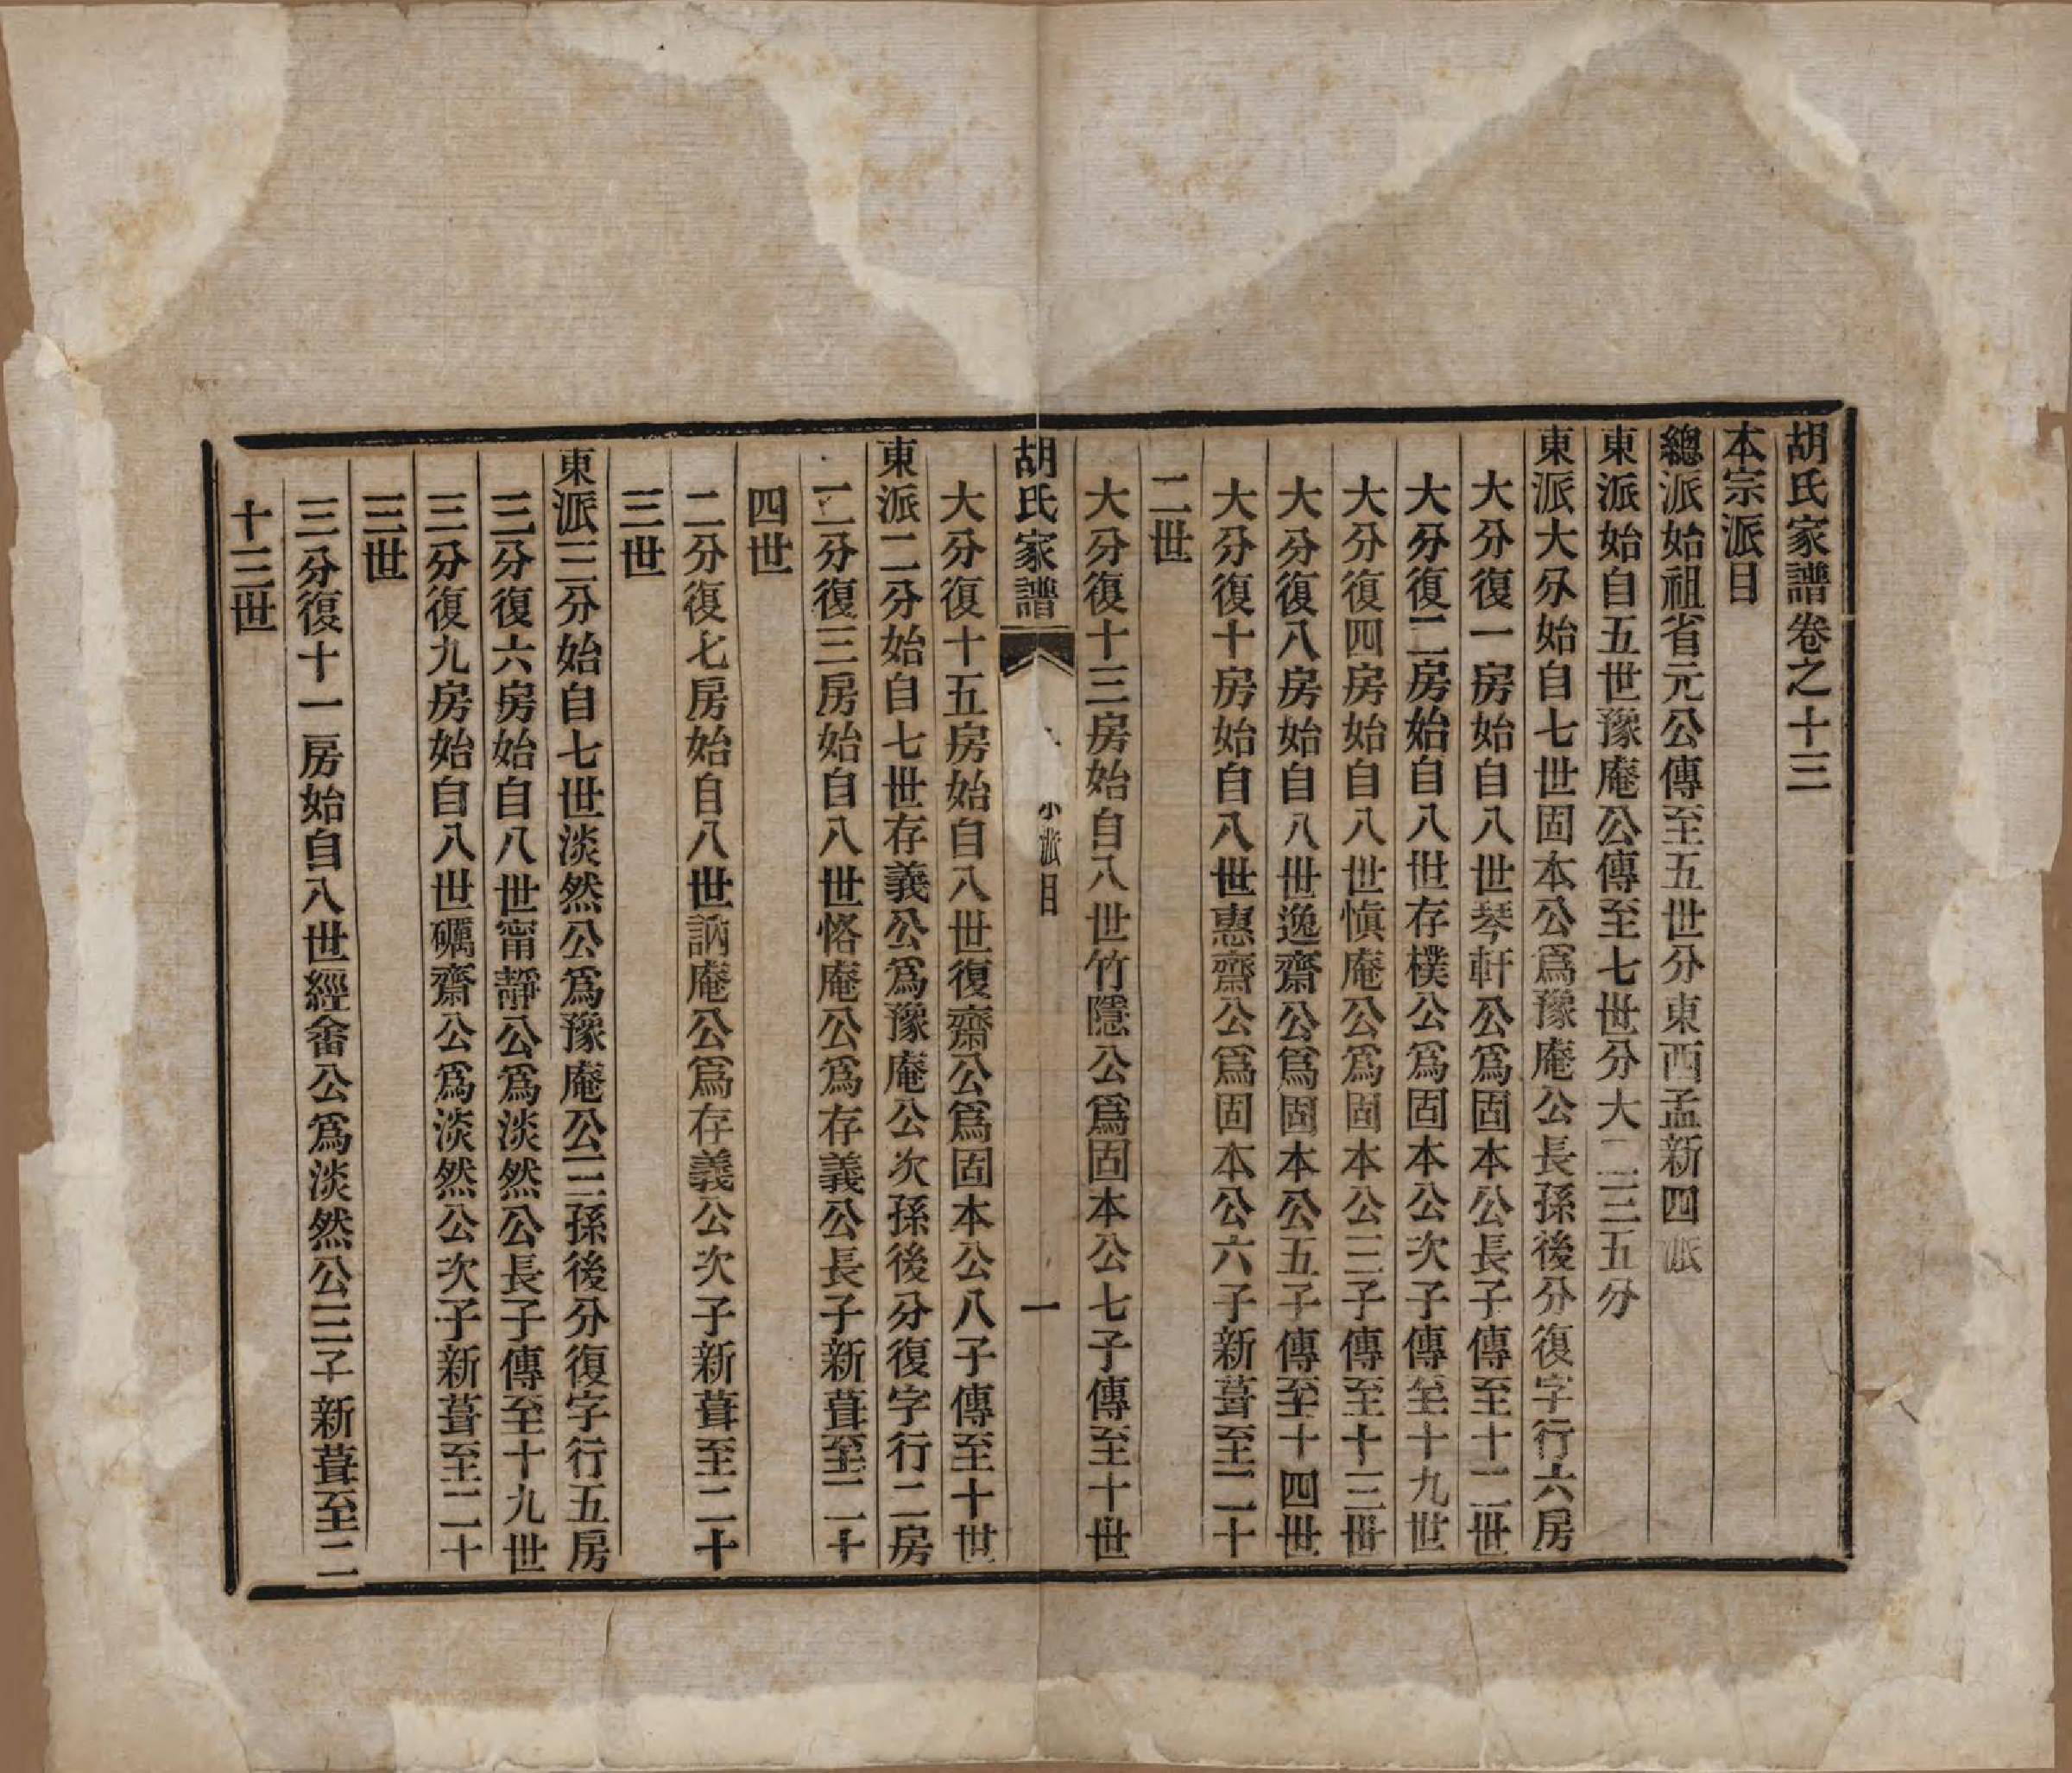 胡氏家譜卷之十三
本宗派目
總派始祖省元公傳至五世分東西孟新四派
東派始自五世豫庵公傳至七世分大二三五分
東派大分始自七世固本公爲豫庵公長孫後分復字行六房
大分復一房始自八世琴軒公爲固本公長子傳至十二世
大分復二房始自八世存樸公爲固本公次子傳至十九世
大分復四房始自八世愼庵公爲固本公三子傳至十三世
大分復八房始自八世逸齋公爲固本公五子傳至十四世
大分復十房始自八世惠齋公爲固本公六子新葺至二十
二世
大分復十三房始自八世竹隱公爲固本公七子傳至十世
胡氏家譜
小派目
一
大分復十五房始自八世復齋公爲固本公八子傳至十世
東派二分始自七世存義公爲豫庵公次孫後分復字行二房
二分復三房始自八世恪庵公爲存義公長子新葺至二十
四世
二分復七房始自八世訥庵公爲存義公次子新葺至二十
三世
東派三分始自七世淡然公爲豫庵公三孫後分復字行五房
三分復六房始自八世甯靜公爲淡然公長子傳至十九世
三分復九房始自八世礪齋公爲淡然公次子新葺至二十
三世
三分復十一房始自八世經畬公爲淡然公三子新葺至二
十三世